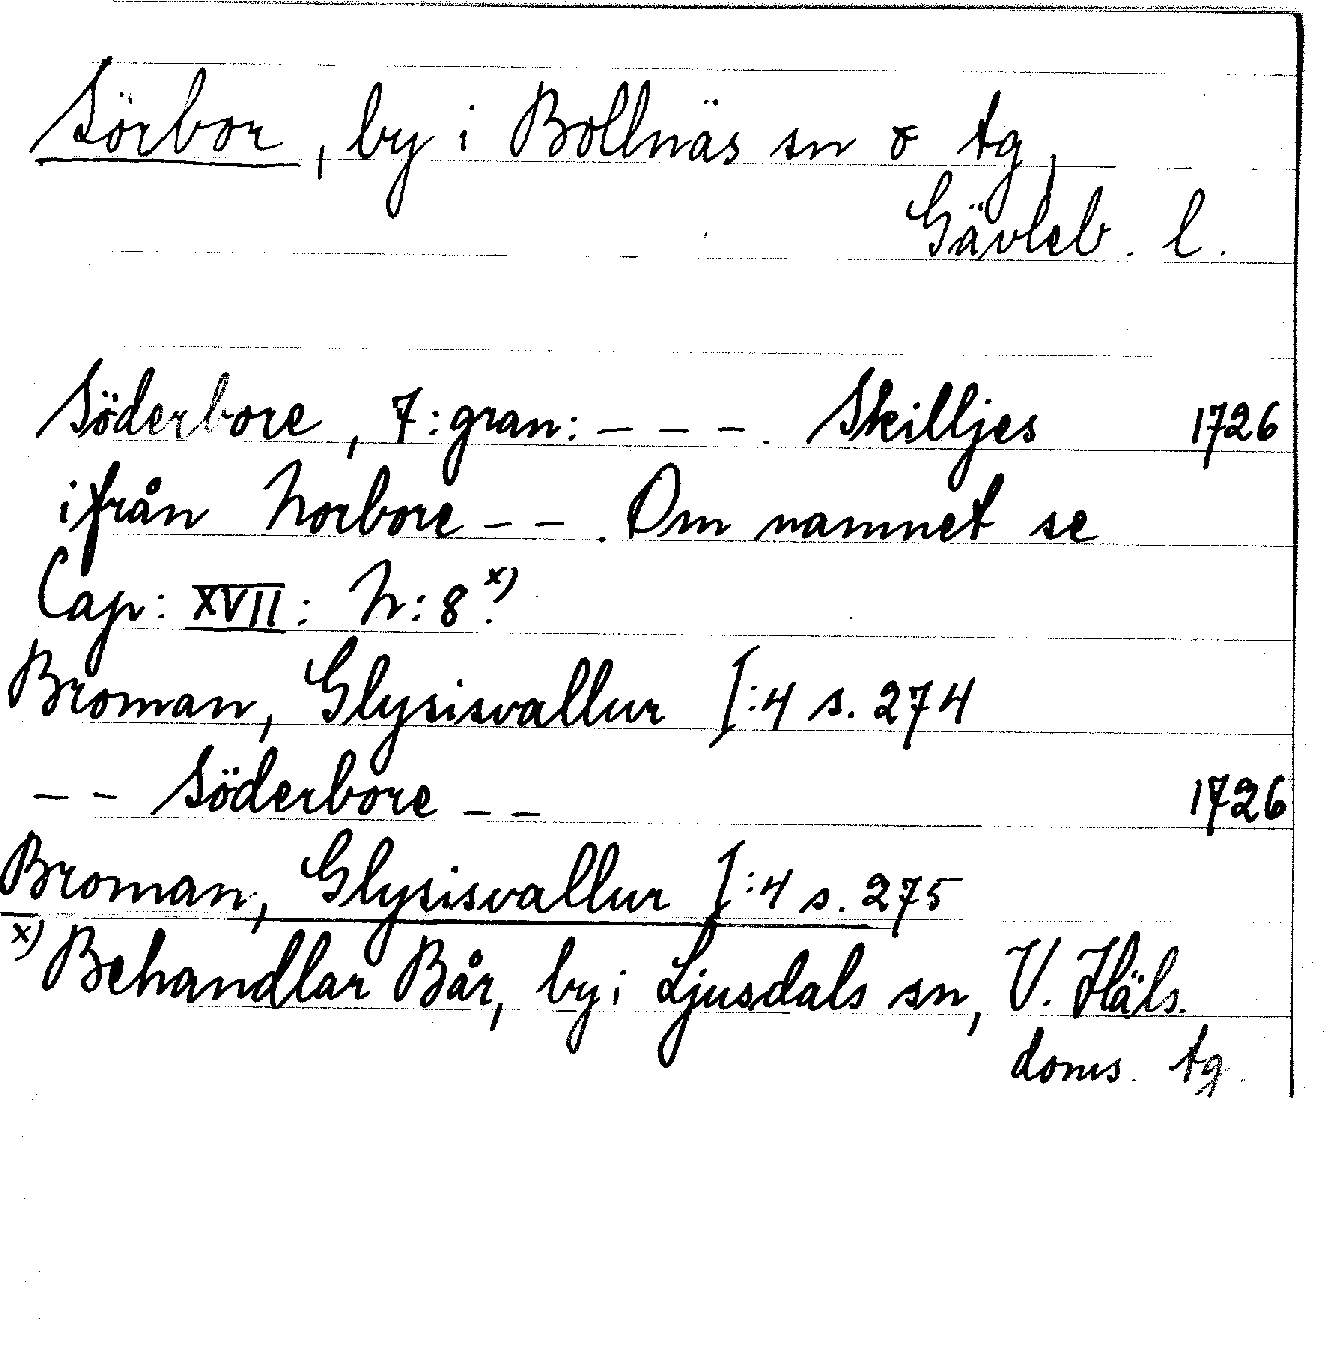 Sörbor, by i Bollnäs sn o tg,
Gävleb. l.
Söderbore, 7:gran: - - - . Skilljes 1726
ifrån Norbore - - . Om namnet se
Cap: XVII: N:8.x)
Broman, Glysisvallur I:4 s. 274
- - Söderbore - - 1726
Broman, Glysisvallur I:4 s. 275
x) Behandlar Bår, by i Ljusdals sn, V. Häls.
doms. tg.